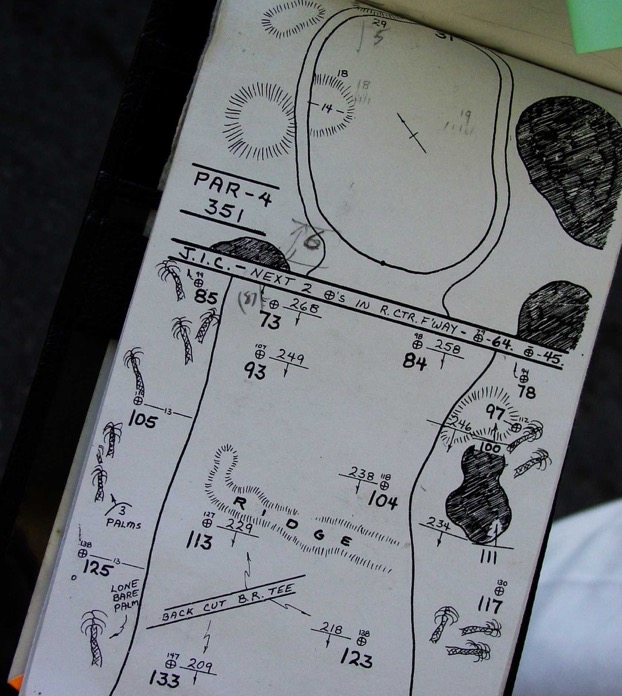 29
5
31
18
14
18
19
PAR-4
351
6
J.I.C. - NEXT 2 ⊕'s IN R.CTR. F'WAY - ⊕-64. ⊕-45.
94
85
73 268
98
84 258
94
78
107
93 249
97 112
246
100
105 13
238 118
104
RIDGE
3
PALMS
127
113 229
234
111
138
125 13
LONE
BARE
PALM
BACK CUT B.R. TEE
130
117
218 138
123
147
133 209